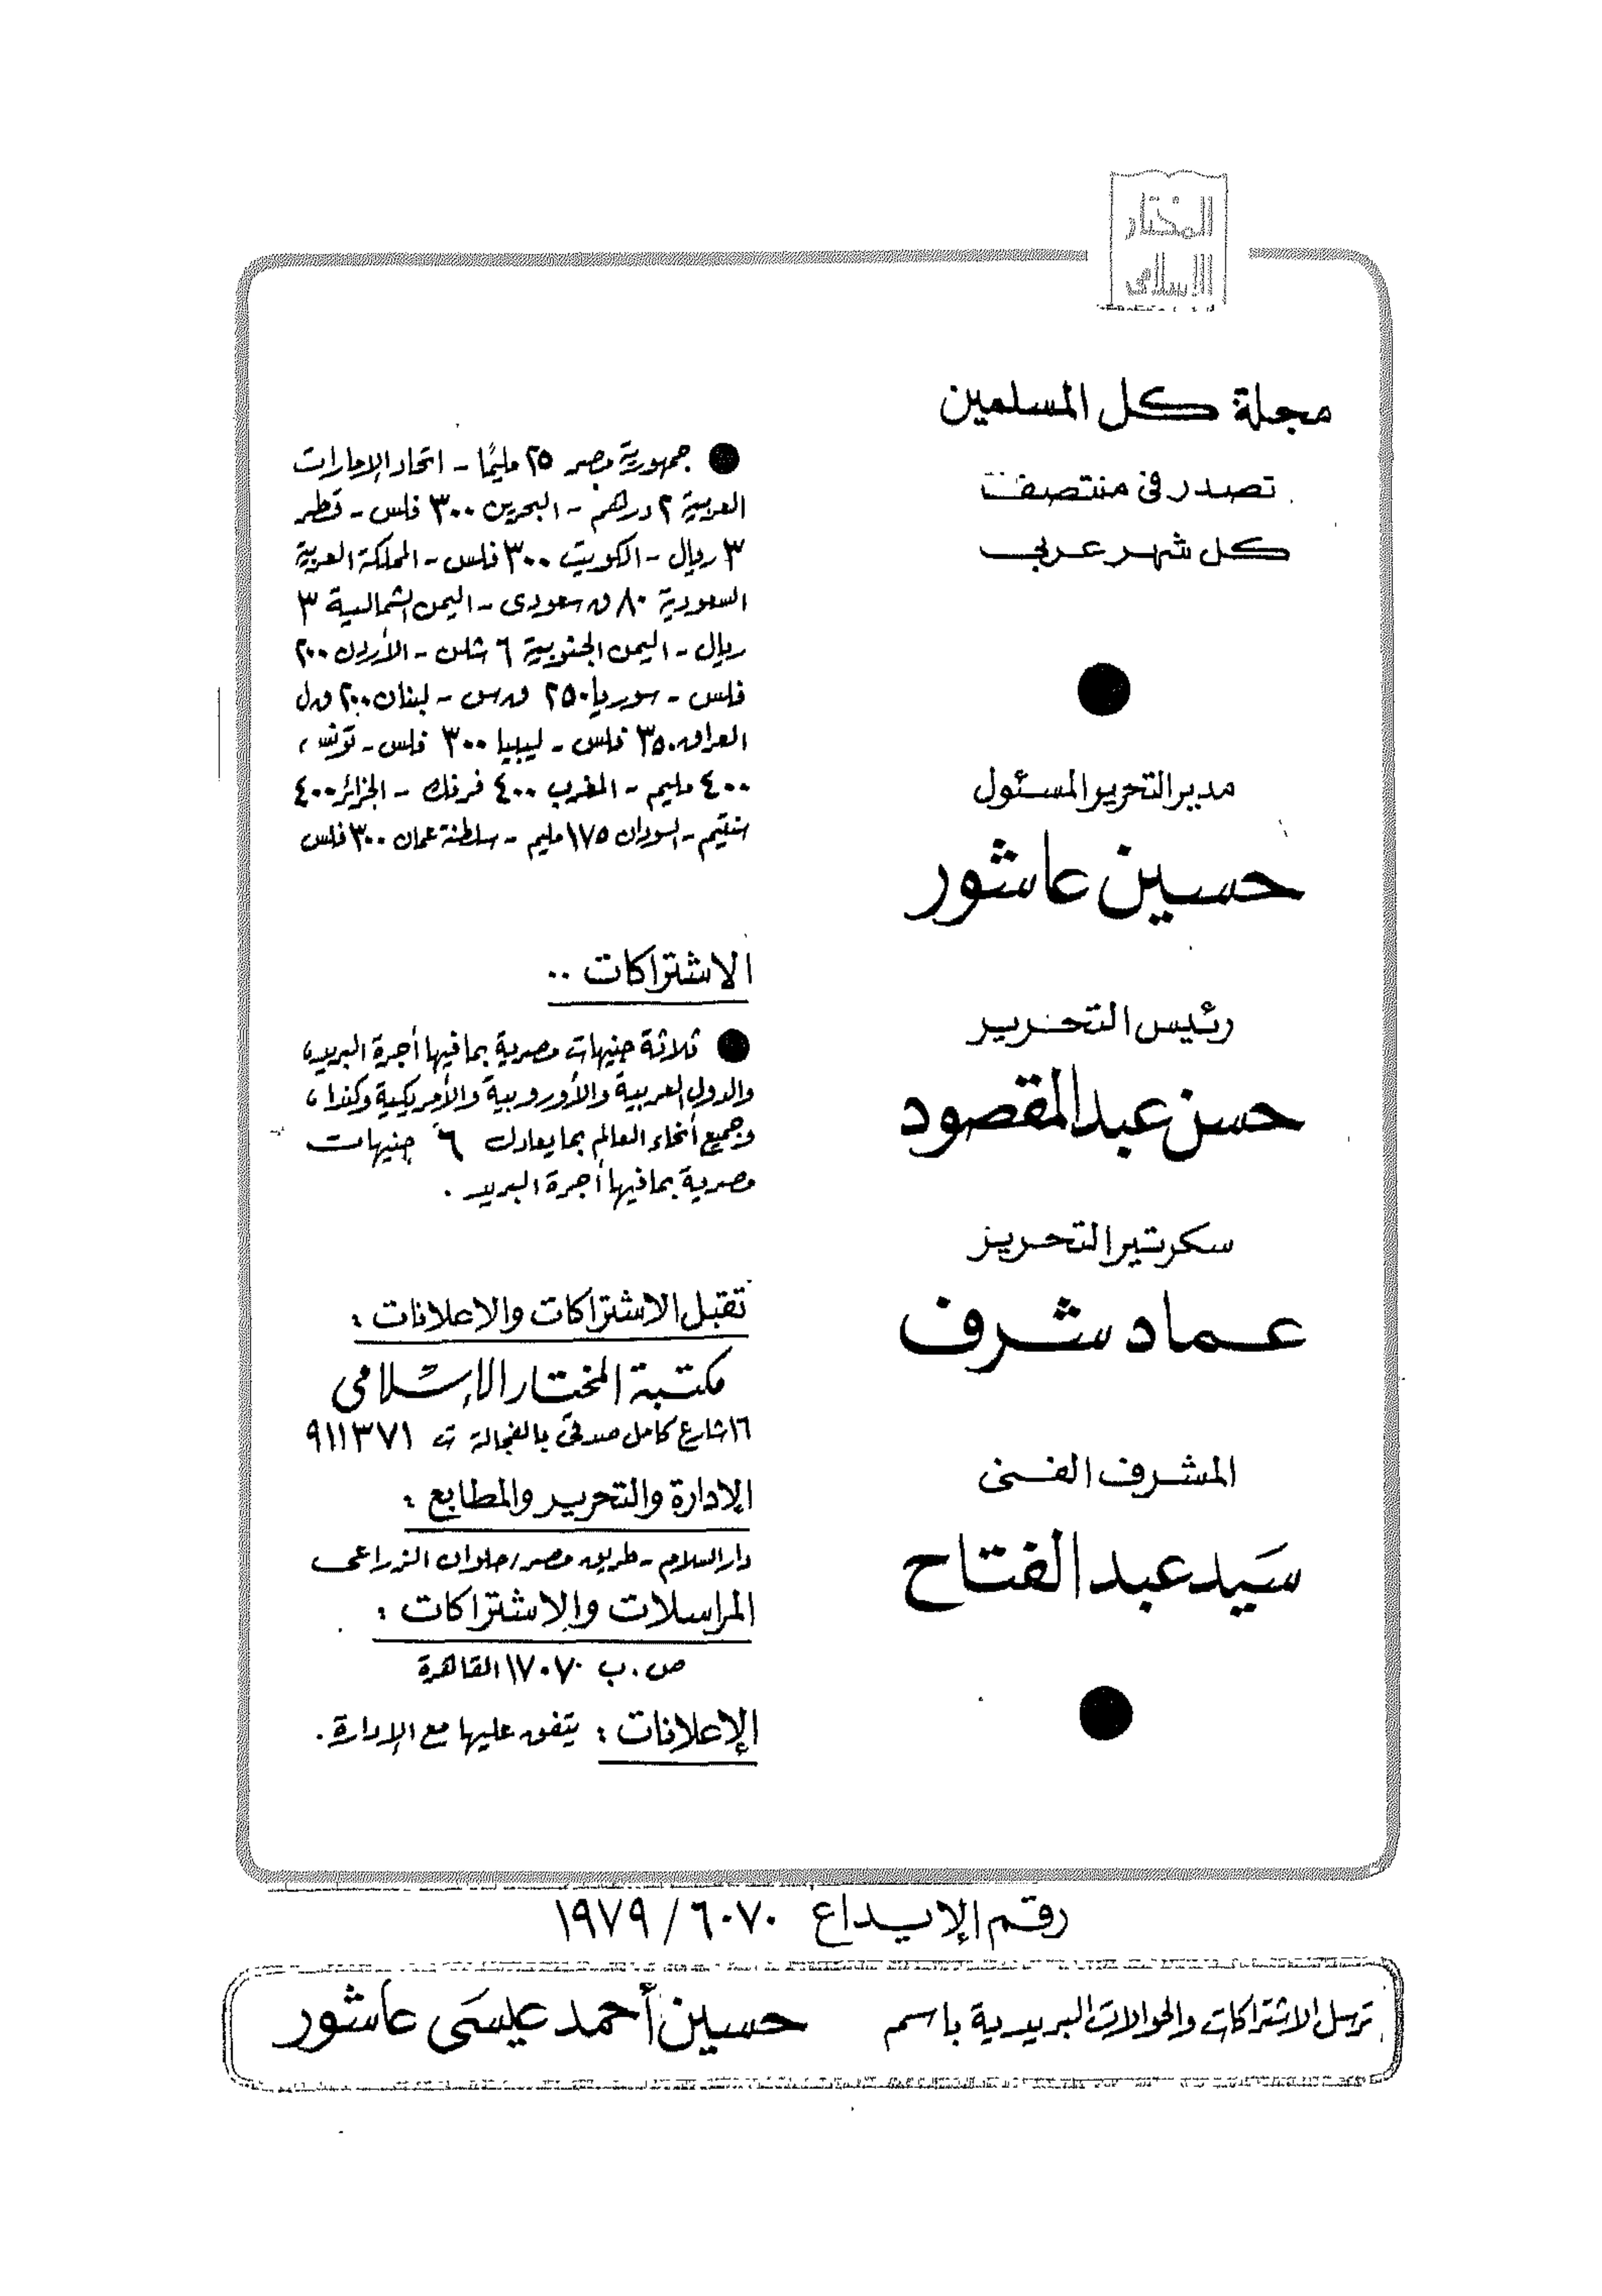 المختار
الإسلامى
مجلة كل المسلمين
تصدر فى منتصف
كل شهر عربى
مدير التحرير المسئول
حسين عاشور
رئيس التحرير
حسن عبد المقصود
سكرتير التحرير
عماد شرف
المشرف الفنى
سَيد عبد الفتاح
● جمهورية مصر ٢٥ مليمًا - اتحاد الإمارات
العربية ٢ درهم - البحرين ٣٠٠ فلس - قطر
٣ ريال - الكويت ٣٠٠ فلس - المملكة العربية
السعودية ٨٠ ق سعودى - اليمن الشمالية ٣
ريال - اليمن الجنوبية ٦ شلن - الأردن ٢٠٠
فلس - سوريا ٢٥٠ ق س - لبنان ٢٠٠ ق ل
العراق ٣٥٠ فلس - ليبيا ٣٠٠ فلس - تونس،
٤٠٠ مليم - المغرب ٤٠٠ فرنك - الجزائر ٤٠٠
سنتيم - السودان ١٧٥ مليم - سلطنة عمان ٣٠٠ فلس
الاشتراكات ..
● ثلاثة جنيهات مصرية بما فيها أجرة البريد،
والدول العربية والأوروبية والأمريكية وكندا،
وجميع أنحاء العالم بما يعادل ٦ جنيهات
مصرية بما فيها أجرة البريد .
تقبل الاشتراكات والاعلانات :
مكتبة المختار الإسلامى
١٦ شارع كامل صدقى بالفجالة ت ٩١١٣٧١
الإدارة والتحرير والمطابع :
دار السلام - طريق مصر/حلوان الزراعى
المراسلات والاشتراكات :
ص . ب ١٧٠٧٠ القاهرة
الإعلانات : يتفق عليها مع الإدارة .
رقم الإيداع ٦٠٧٠ / ١٩٧٩
ترسل الاشتراكات والحوالات البريدية باسم حسين أحمد عيسَى عاشور